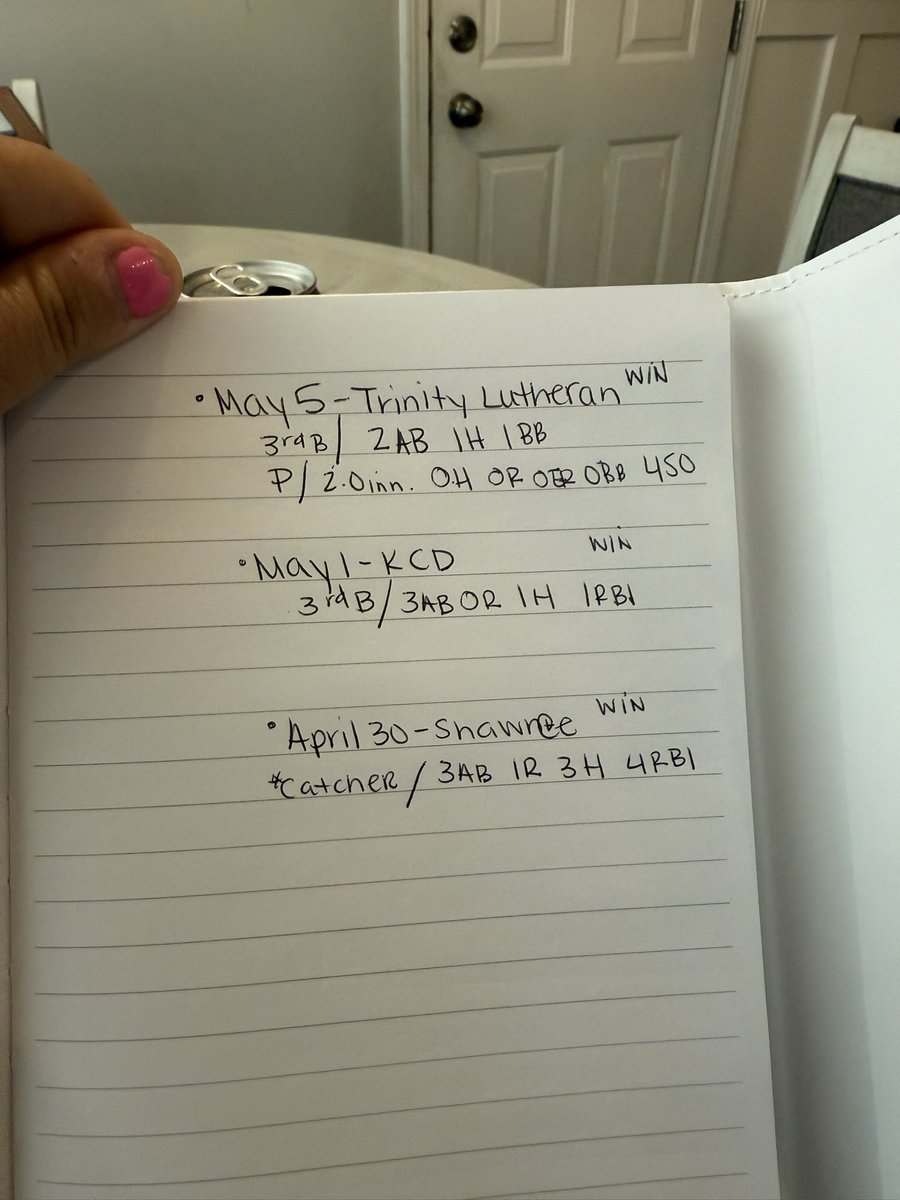 •May 5-Trinity Lutheran WIN
3rd B/ 2AB 1H 1BB
P/ 2.0inn. 0H 0R 0ER 0BB 4SO
•May 1-KCD WIN
3rd B/3AB 0R 1H 1RBI
•April 30-Shawnee WIN
*Catcher/3AB 1R 3H 4RBI